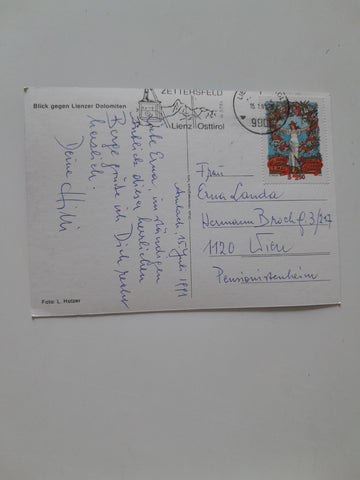 Blick gegen Lienzer Dolomiten
ZETTERSFELD
Lienz Osttirol
990
Amlach, 15. Juli 1991
Liebe Erna, im ständigen
Anblick dieser herrlichen
Berge grüße ich Dich recht
herzlich!
Deine Hilli
Frau
Erna Landa
Hermann Broch g. 3/
1120 Wien
Pensionistenheim
Foto: L. Hatzer